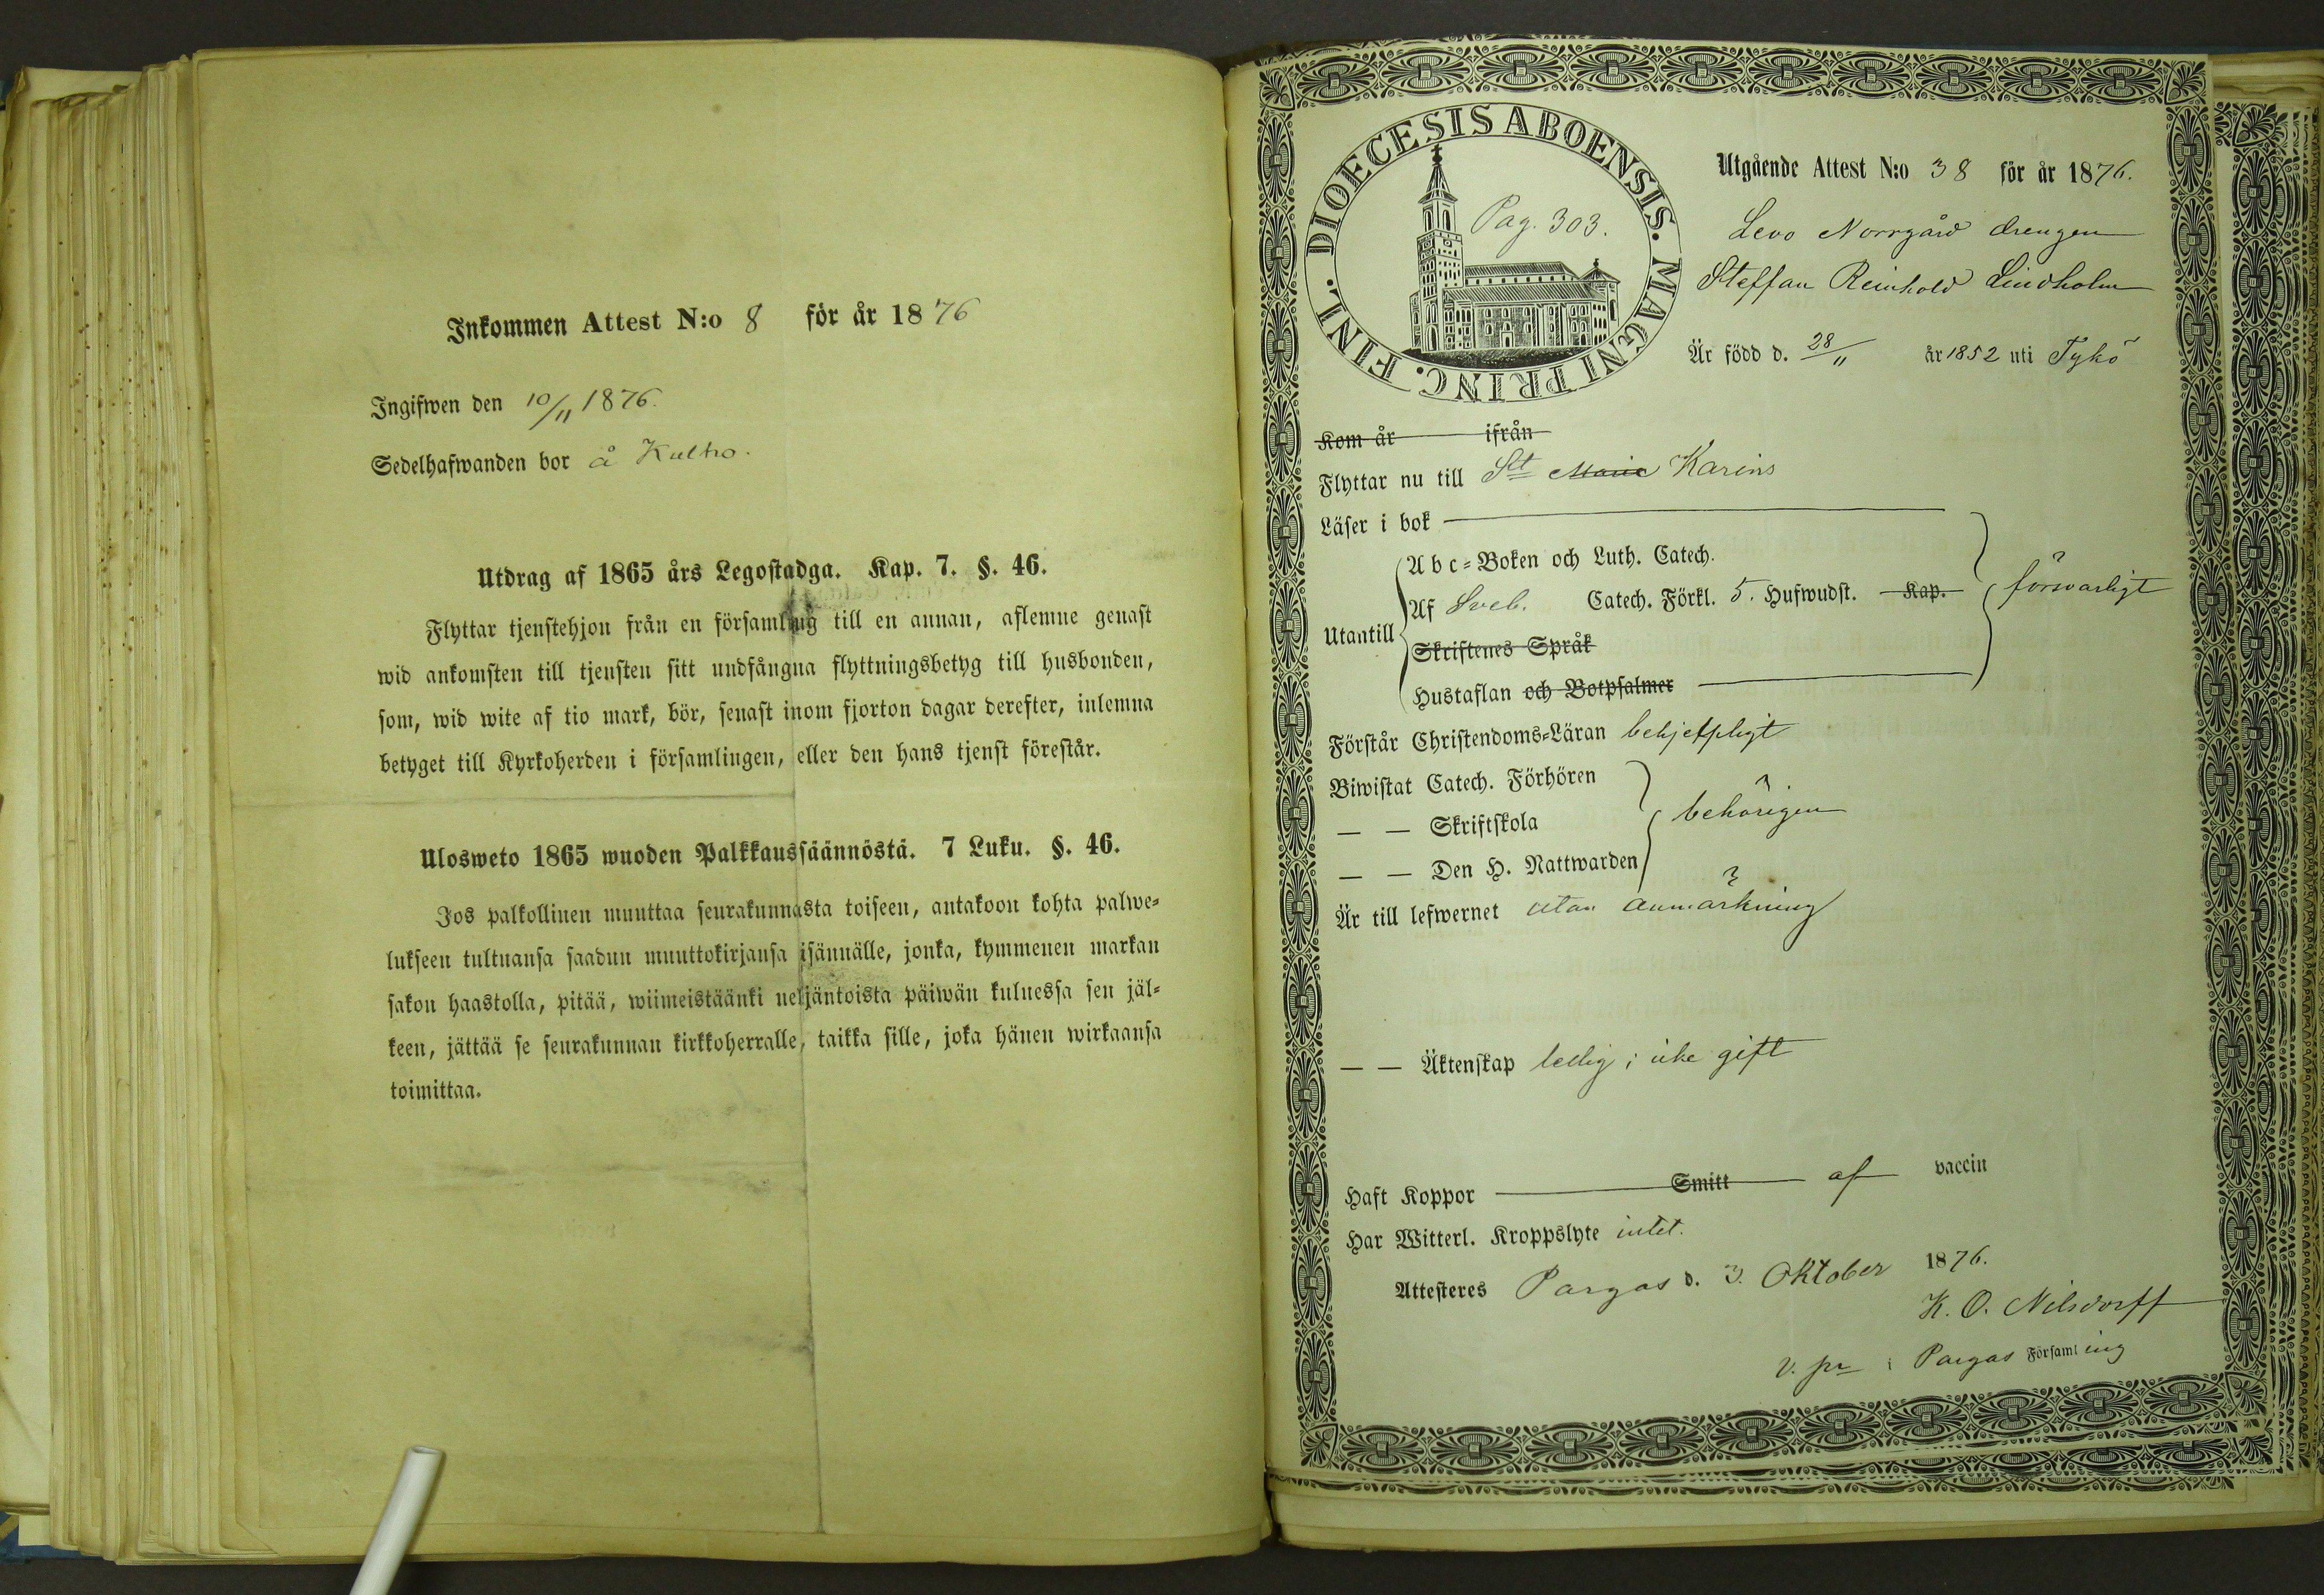 Inkommen Attest N:o 8 för år 1876
Ingifwen den 10/11 1876.
Sedelhafwanden bor å Kultro.
Utdrag af 1865 års Legostadga. Kap. 7. §. 46.
Flyttar tjenstehjon från en församling till en annan, aflemne genast
wid ankomsten till tjensten sitt undfångna flyttningsbetyg till husbonden,
som, wid wite af tio mark, bör, senast inom fjorton dagar derefter, inlemna
betyget till Kyrkoherden i församlingen, eller den hans tjenst förestår.
Ulosweto 1865 wuoden Palkkaussäännöstä. 7 Luku. §. 46.
Jos palkollinen muuttaa seurakunnasta toiseen, antakoon kohta palwe-
lukseen tultuansa saadun muuttokirjansa isännälle, jonka, kymmenen markan
sakon haastolla, pitää, wiimeistäänki neljäntoista päiwän kuluessa sen jäl-
keen, jättää se seurakunnan kirkkoherralle, taikka sille, joka hänen wirkaansa
toimittaa.
DIOECESIS ABOENSIS. MAGNI PRINC. FINL.
Pag. 303.
Utgående Attest N:o 38 för år 1876.
Levo Norrgård drengen
Steffan Reinhold Lindholm
Är född d. 28/11 år 1852 uti Tykö
Kom år ifrån
Flyttar nu till St Marie Karins
Läser i bok
Utantill
Abc-Boken och Luth. Catech.
Af Sveb. Catech. Förkl. 5. Hufwudst. Kap. försvarligt
Skriftenes Språk
Hustaflan och Botpsalmer
Förstår Christendoms-Läran behjelpligt
Biwistat Catech. Förhören
— — Skriftskola behörigen
— — Den H. Nattwarden
Är till lefwernet utan anmärkning
— — Äktenskap ledig; icke gift
Haft Koppor Smitt af vaccin
Har Witterl. Kroppslyte intet.
Attesteres Pargas d. 3. Oktober 1876.
K. O. Nilsdorff
v. pr i Pargas Församling